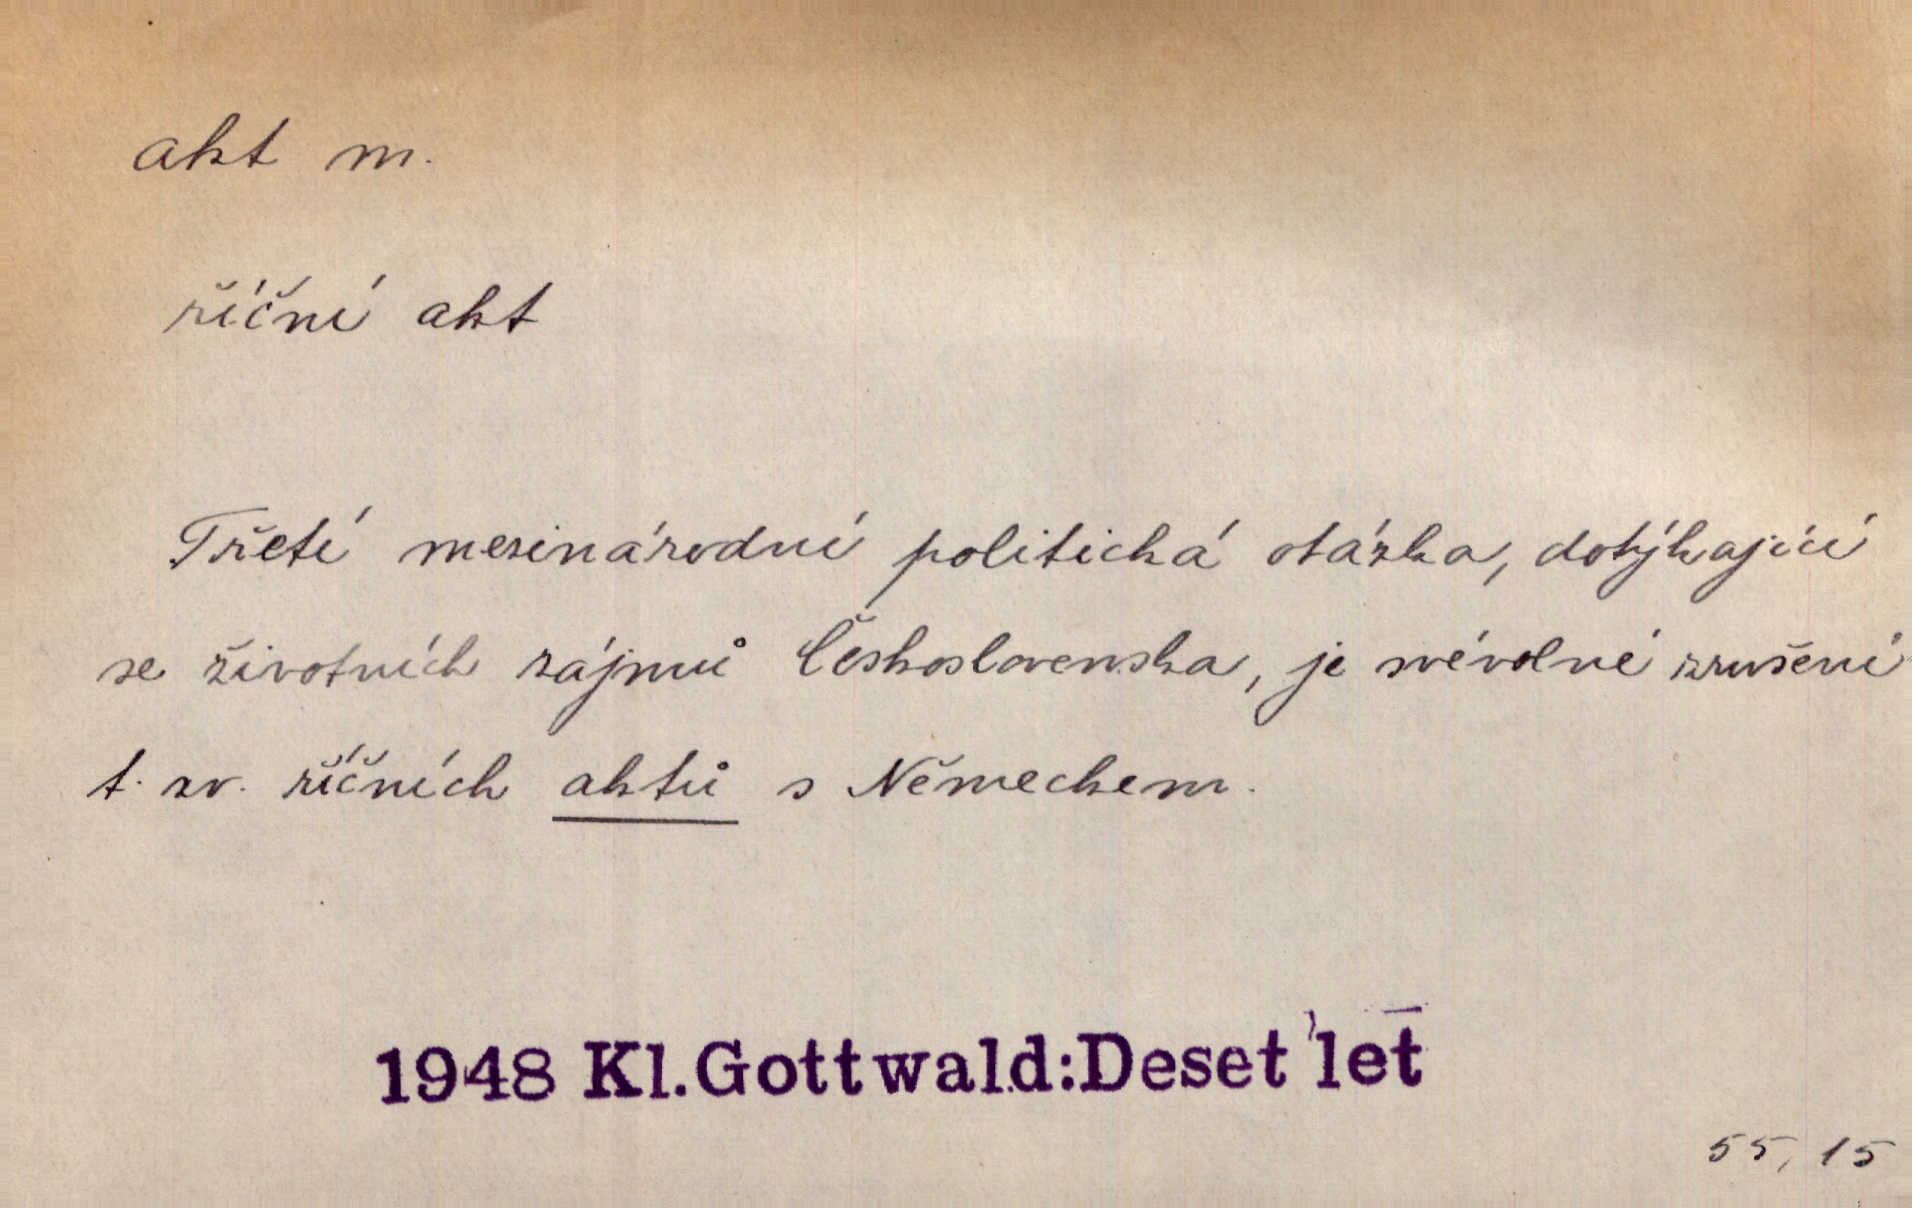 akt m.
říční akt
Třetí mezinárodní politická otázka, dotýkající
se životních zájmů Československa, je svévolné zrušení
t. zv. říčních aktů s Německem.
1948 Kl.Gottwald:Deset let
55, 15